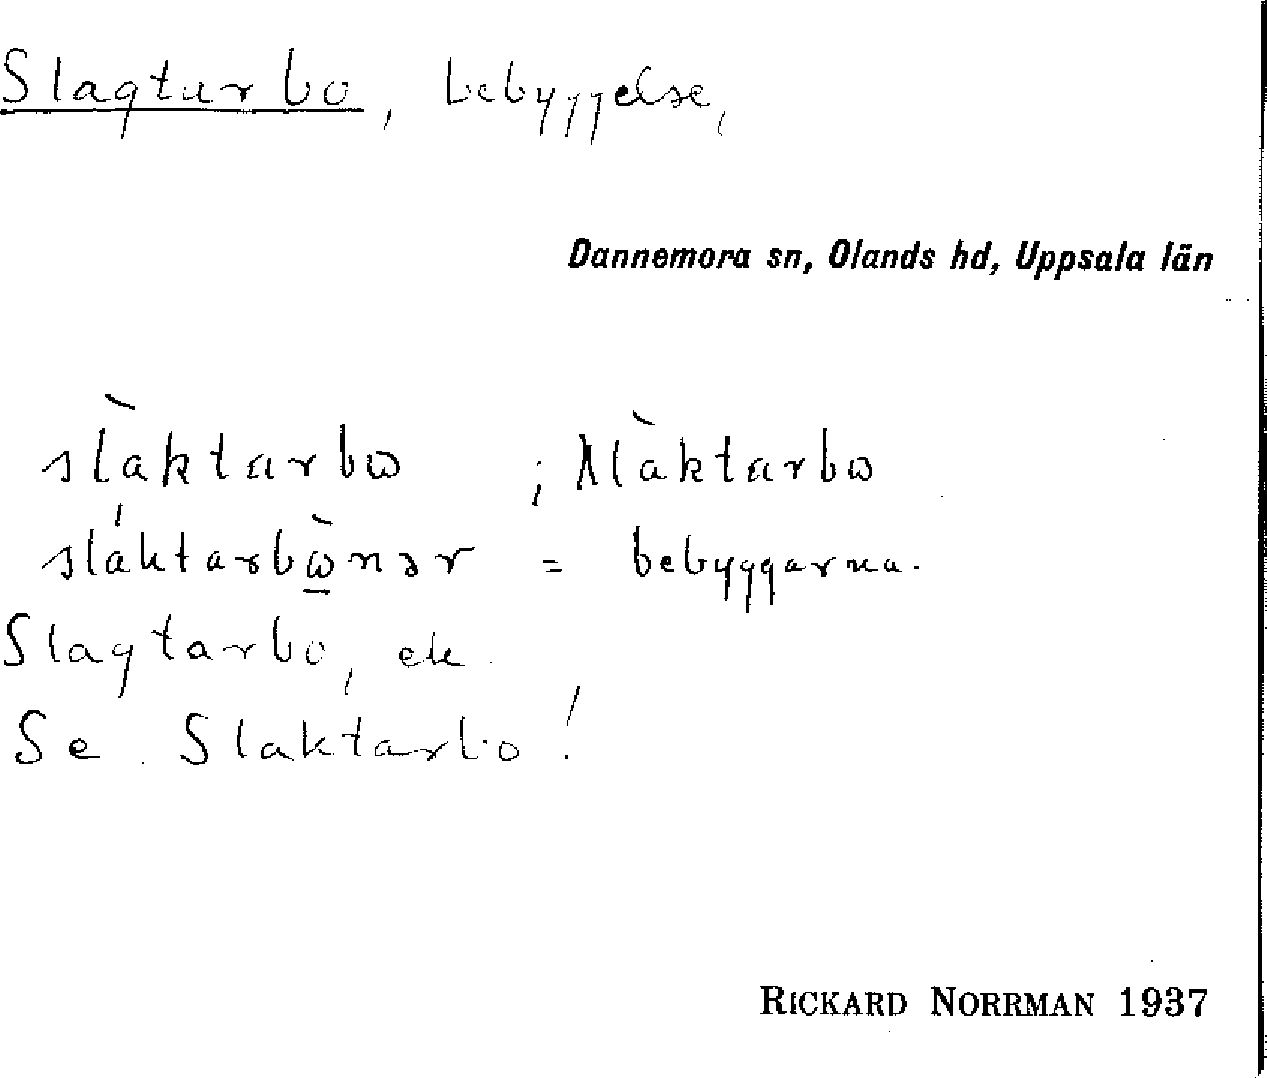 Slagtarbo, bebyggelse,
Dannemora sn, Olands hd, Uppsala län
slàktarbω ; slàktarbω
sláktarbὼ̠nər = bebyggarna.
Slagtarbo, ek.
Se Slaktarbo!
RICKARD NORRMAN 1937